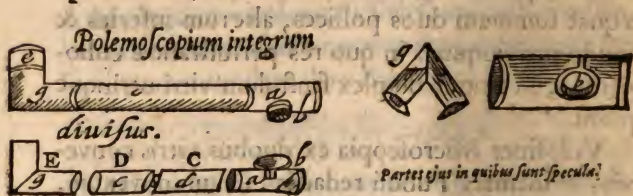 Polemoſcopium integrum
e
g c a b
g b
diuiſus.
E D C b
c d a
Partes ejus in quibus ſunt ſpecula.